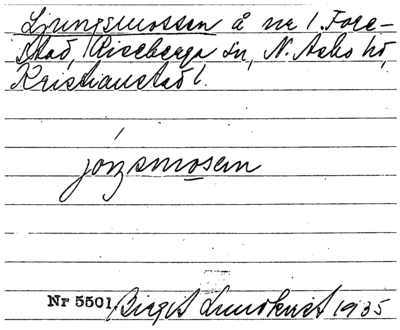 Ljungsmossen å nr 1. Fore-
stad, Riseberga sn, N. Åsbo hd,
Kristianstad l.
jóŋsmosen
Nr 5501 Birgit Lundkvist 1935